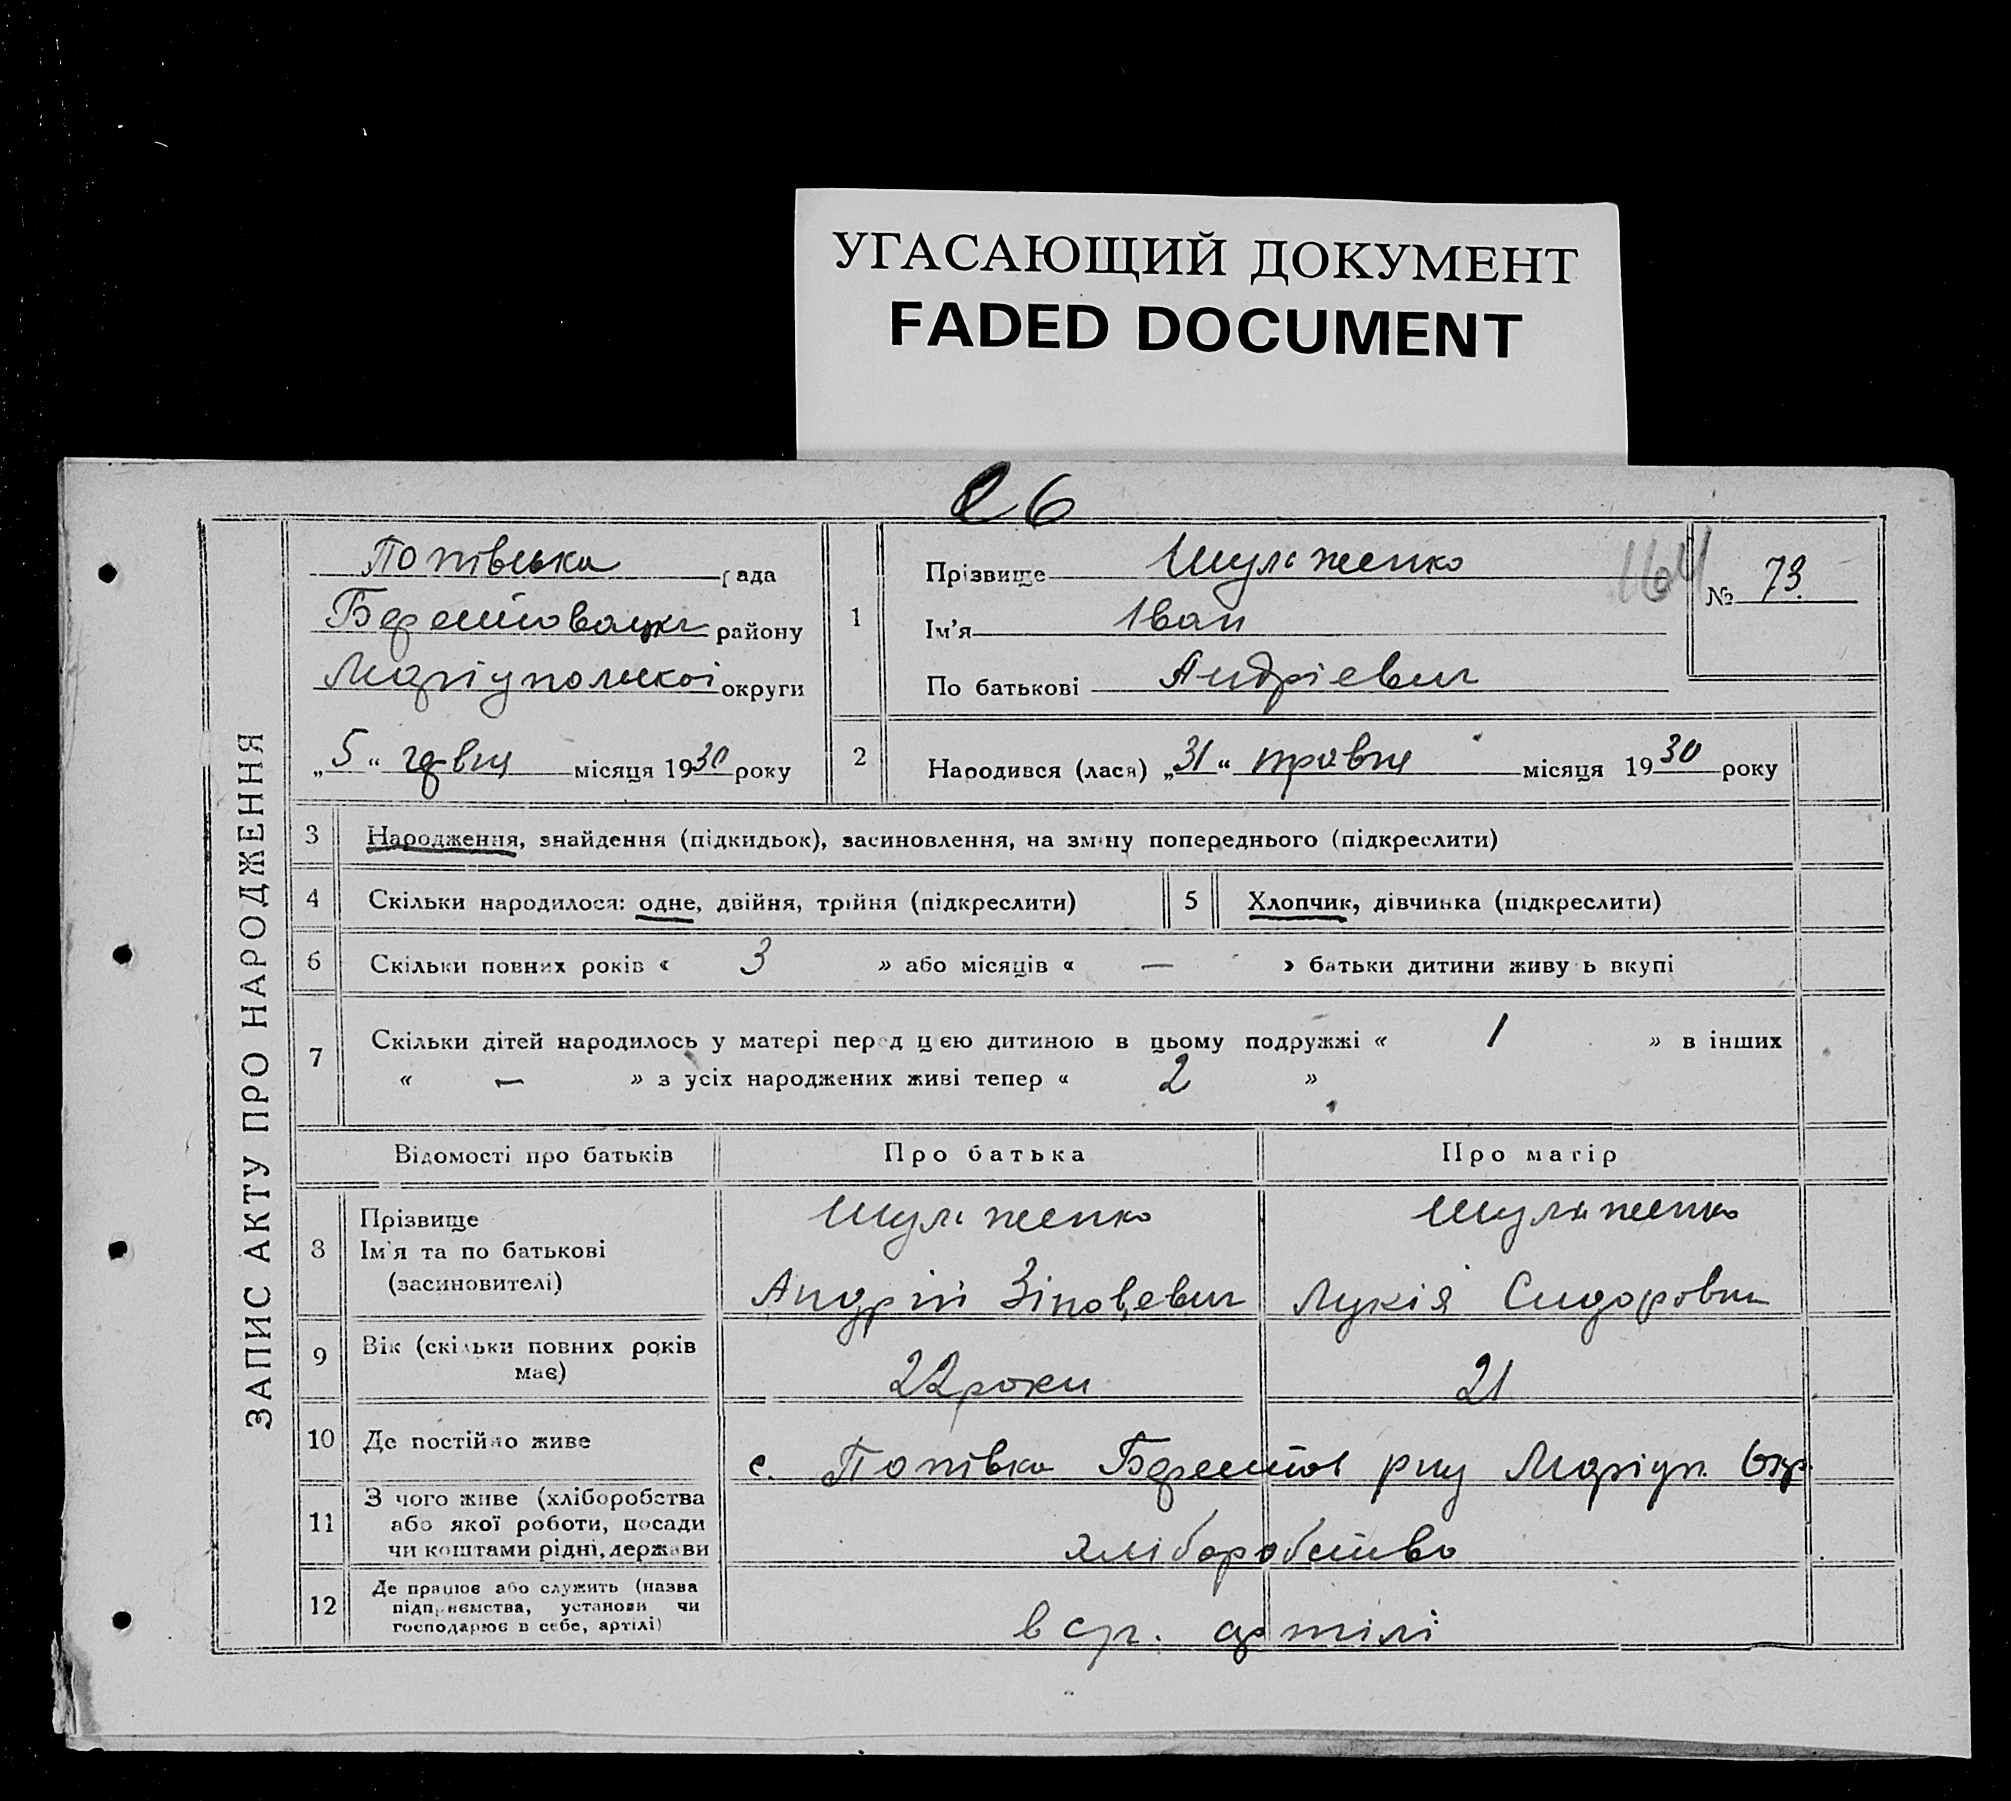 УГАСАЮЩИЙ ДОКУМЕНТ
FADED DOCUMENT
26
ЗАПИС АКТУ ПРО НАРОДЖЕННЯ
Попівська рада
району
Маріупольскої округи
„5“ червня місяця 1930 року
164
№ 73.
1 Прізвище Шуляженко
Ім’я Іван
По батькові Андрієвич
2 Народився (лася) „31“ травня місяця 1930 року
3 Народження, знайдення (підкидьок), засиновлення, на зміну попереднього (підкреслити)
4 Скільки народилося: одне, двійня, трійня (підкреслити) 5 Хлопчик, дівчинка (підкреслити)
6 Скільки повних років « 3 » або місяців « — » батьки дитини живуть вкупі
7 Скільки дітей народилось у матері перед цією дитиною в цьому подружжі « 1 » в інших
« — » з усіх народжених живі тепер « 2 »
Відомості про батьків Про батька Про матір
8 Прізвище Шуляженко Шуляженко
Ім’я та по батькові
(засиновителі) Андрій Зіновієвич Лукія Сидоровна
9 Вік (скільки повних років має) 22 роки 21
10 Де постійно живе с. Попівка Берестов рну Маріуп. Окр.
11 З чого живе (хліборобства
або якої роботи, посади
чи коштами рідні, держави хліборобство
12 Де працює або служить (назва
підприємства, установи чи
господарює в себе, артілі) в с/г. артілі